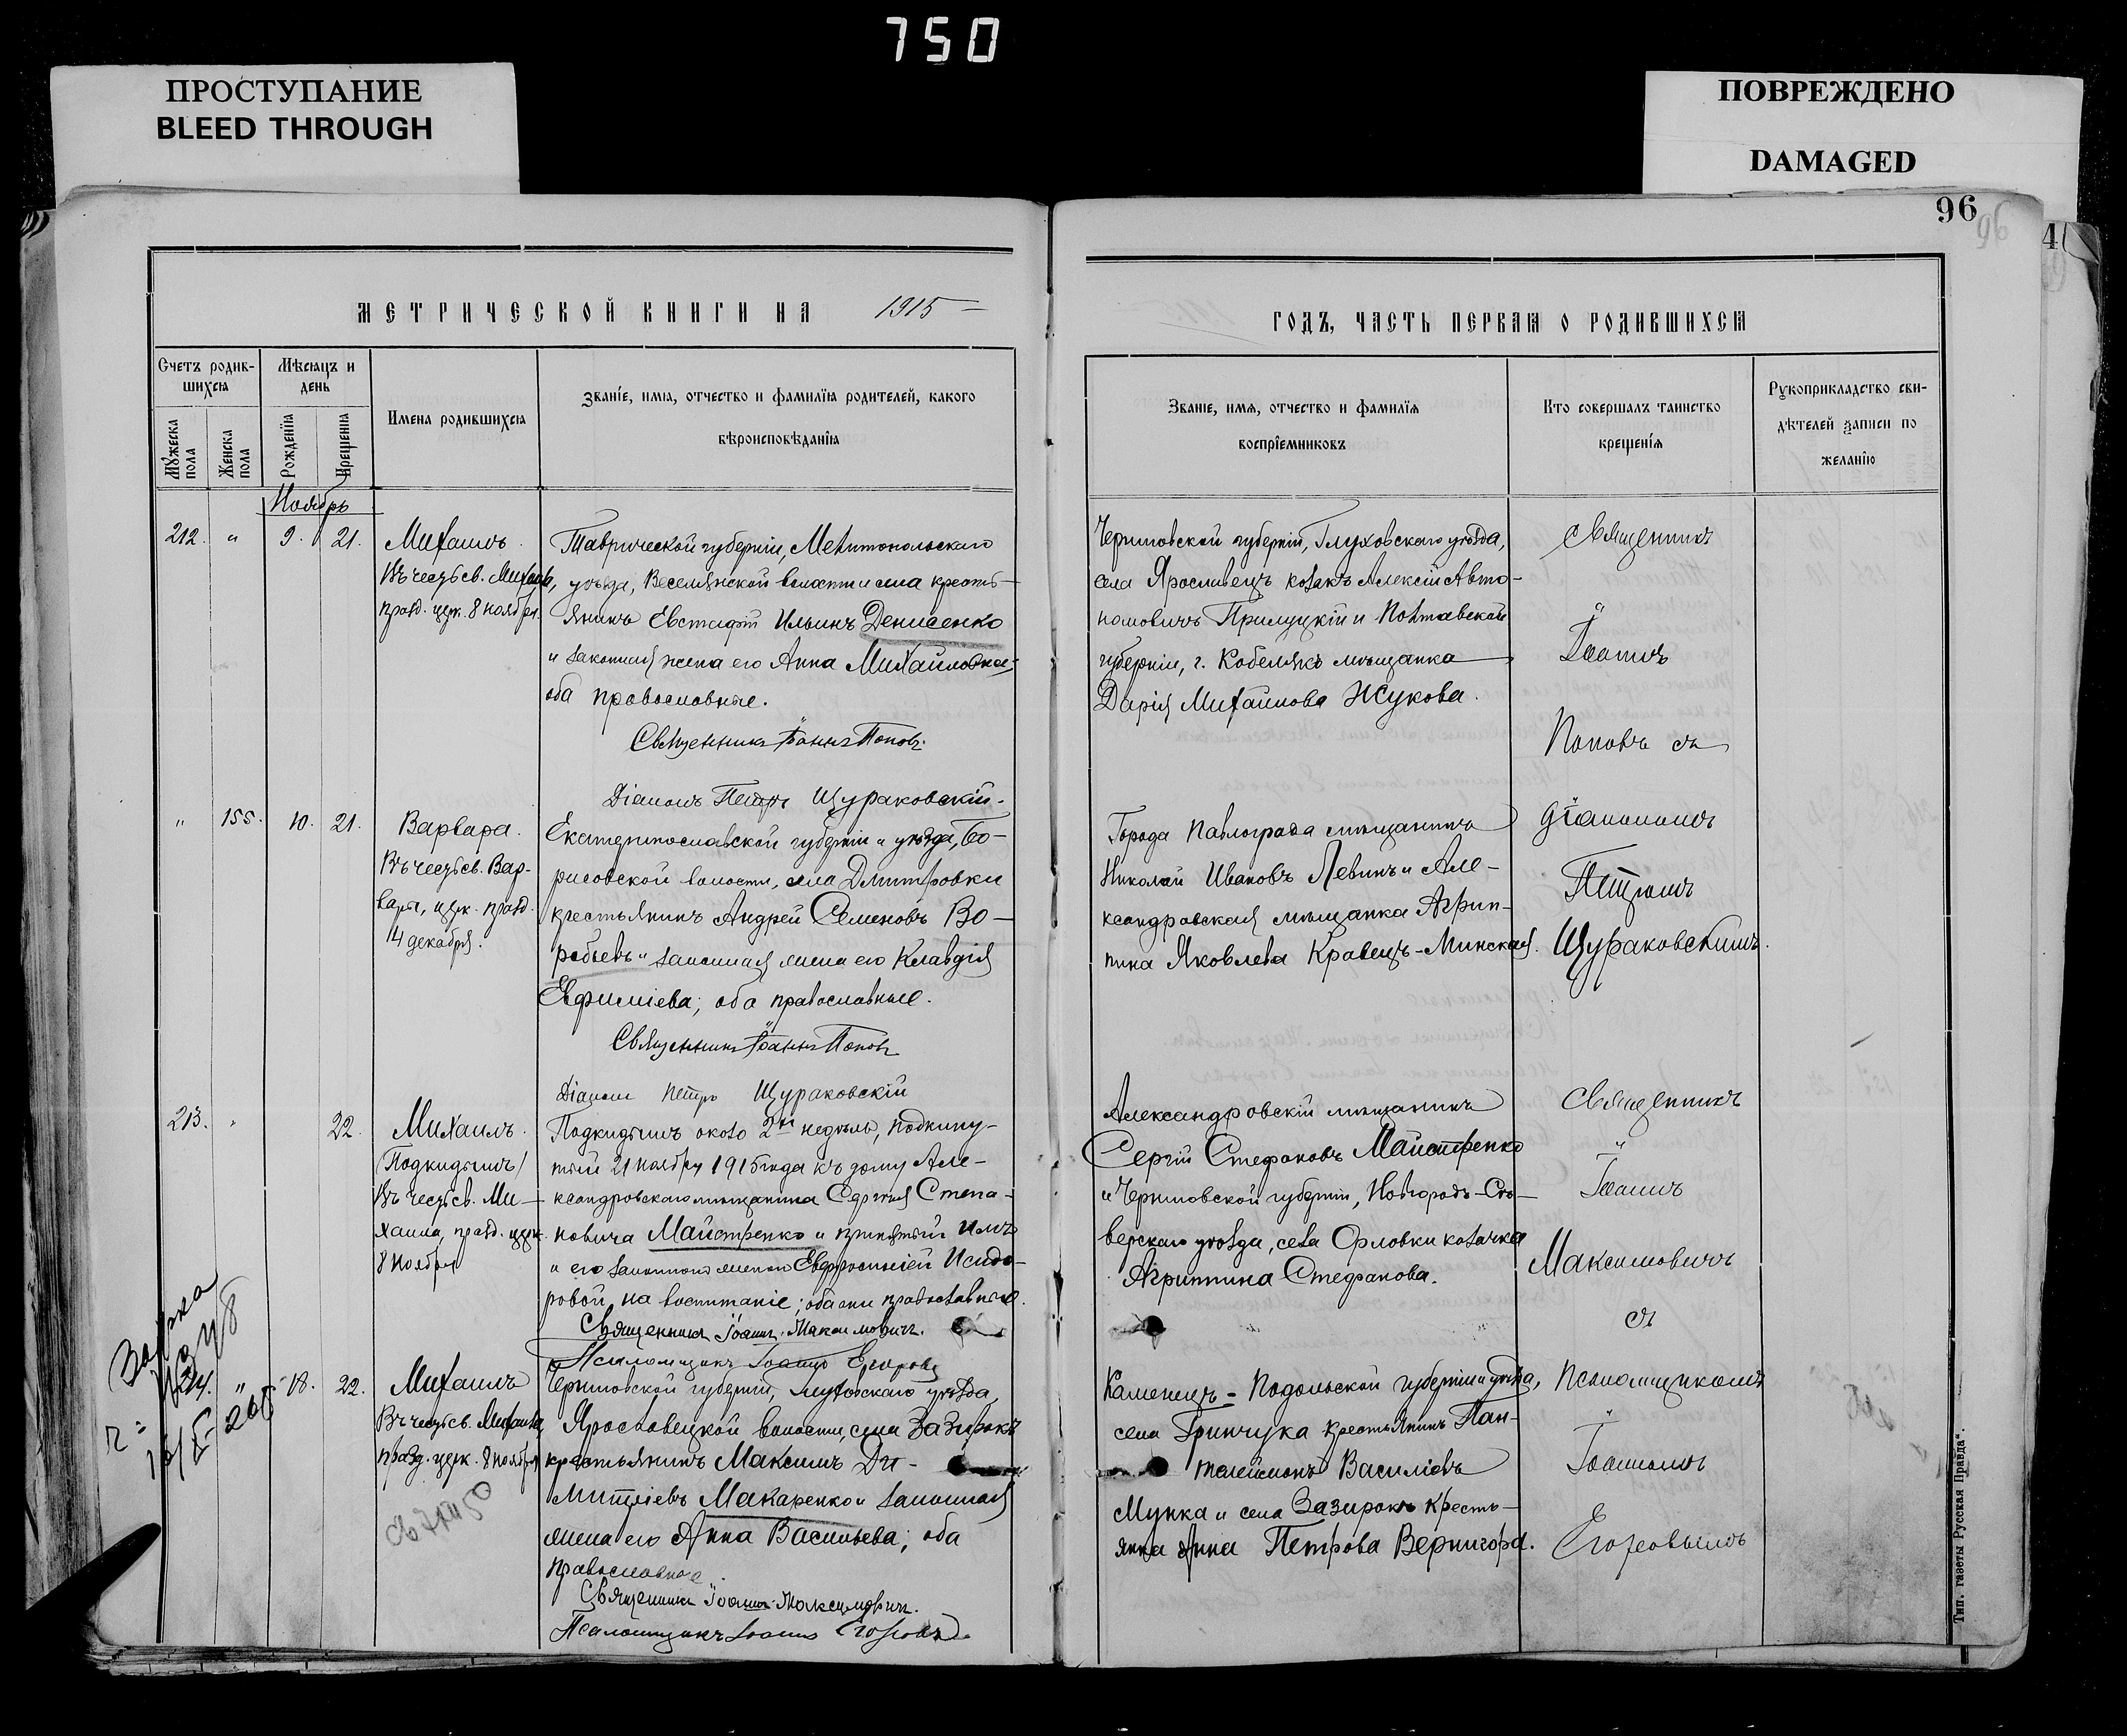 750
ПРОСТУПАНИЕ
BLEED THROUGH
ПОВРЕЖДЕНО
DAMAGED
96
96
4
МЕТРИЧЕСКОЙ КНИГИ НА 1915
Счетъ родив-
шихся
Мѣсяцъ и
день
Мужеска
пола
Женска
пола
Рожденія
Крещенія
Имена родившихся
Званіе, имя, отчество и фамилія родителей, какого
вѣроисповѣданія
Ноябрь
212. " 9. 21.
Михаилъ.
Въ честь св. Михаила,
празд. церк. 8 ноября.
Таврической губерніи, Мелитопольскаго
уѣзда, Веселянской волости и села кресть-
янинъ Евстафій Ильинъ Денисенко
и законная жена его Анна Михайловна;
оба православные.
Священникъ Іоаннъ Поповъ.
Діаконъ Петръ Щураковскій.
" 155. 10. 21.
Варвара.
Въ честь св. Вар-
вары, церк. празд.
14 декабря.
Екатеринославской губерніи и уѣзда, Бо-
рисовской волости, села Дмитровки
крестьянинъ Андрей Семеновъ Во-
робьевъ и законная жена его Клавдія
Евфиміева; оба православные.
Священникъ Іоаннъ Поповъ
Діаконъ Петръ Щураковскій
213. " 22.
Михаилъ.
(Подкидышъ)
Въ честь св. Ми-
хаила, празд. церк.
8 ноября
Подкидышъ около 2хъ недѣль, подкину-
тый 21 ноября 1915 года къ дому Але-
ксандровскаго мѣщанина Сергія Степа-
новича Майстренко и принятый имъ
и его законною женою Евфросиніей Исидо-
ровой на воспитаніе; оба они православные.
Священникъ Іоаннъ Максимовичъ.
Псаломщикъ Іоаннъ Егоровъ
214. " 18. 22.
Михаилъ
Въ честь св. Михаила,
празд. церк. 8 ноября
Черниговской губерніи, Глуховскаго уѣзда,
Ярославецкой волости, села Зазирокъ
крестьянинъ Максимъ Ди-
митріевъ Макаренко и законная
жена его Анна Васильева; оба
православные.
Священникъ Іоаннъ Максимовичъ.
Псаломщикъ Іоаннъ Егоровъ
ГОДЪ, ЧАСТЬ ПЕРВАЯ О РОДИВШИХСЯ
Званіе, имя, отчество и фамилія
воспріемниковъ
Кто совершалъ таинство
крещенія
Рукоприкладство сви-
дѣтелей записи по
желанію
Черниговской губерніи, Глуховскаго уѣзда,
села Ярославецъ козакъ Алексій Авто-
номовичъ Прилуцкій и Полтавской
губерніи, г. Кобелякъ мѣщанка
Дарія Михайлова Жукова.
Священникъ
Іоаннъ
Поповъ съ
Города Павлограда мѣщанинъ
Николай Ивановъ Левинъ и Але-
ксандровская мѣщанка Агрип-
пина Яковлева Кравецъ-Минская.
діакономъ
Петромъ
Щураковскимъ.
Александровскій мѣщанинъ
Сергій Стефановъ Майстренко
и Черниговской губерніи, Новгородъ-Сѣ-
верскаго уѣзда, села Орловки козачка
Агриппина Стефанова.
Священникъ
Іоаннъ
Максимовичъ
съ
Каменецъ-Подольской губерніи и уѣзда,
села Гринчука крестьянинъ Пан-
телеимонъ Василіевъ
Мунка и села Зазирокъ кресть-
янка Анна Петрова Вернигора.
Псаломщикомъ
Іоанномъ
Егоровымъ
Тип. газеты "Русская Правда".